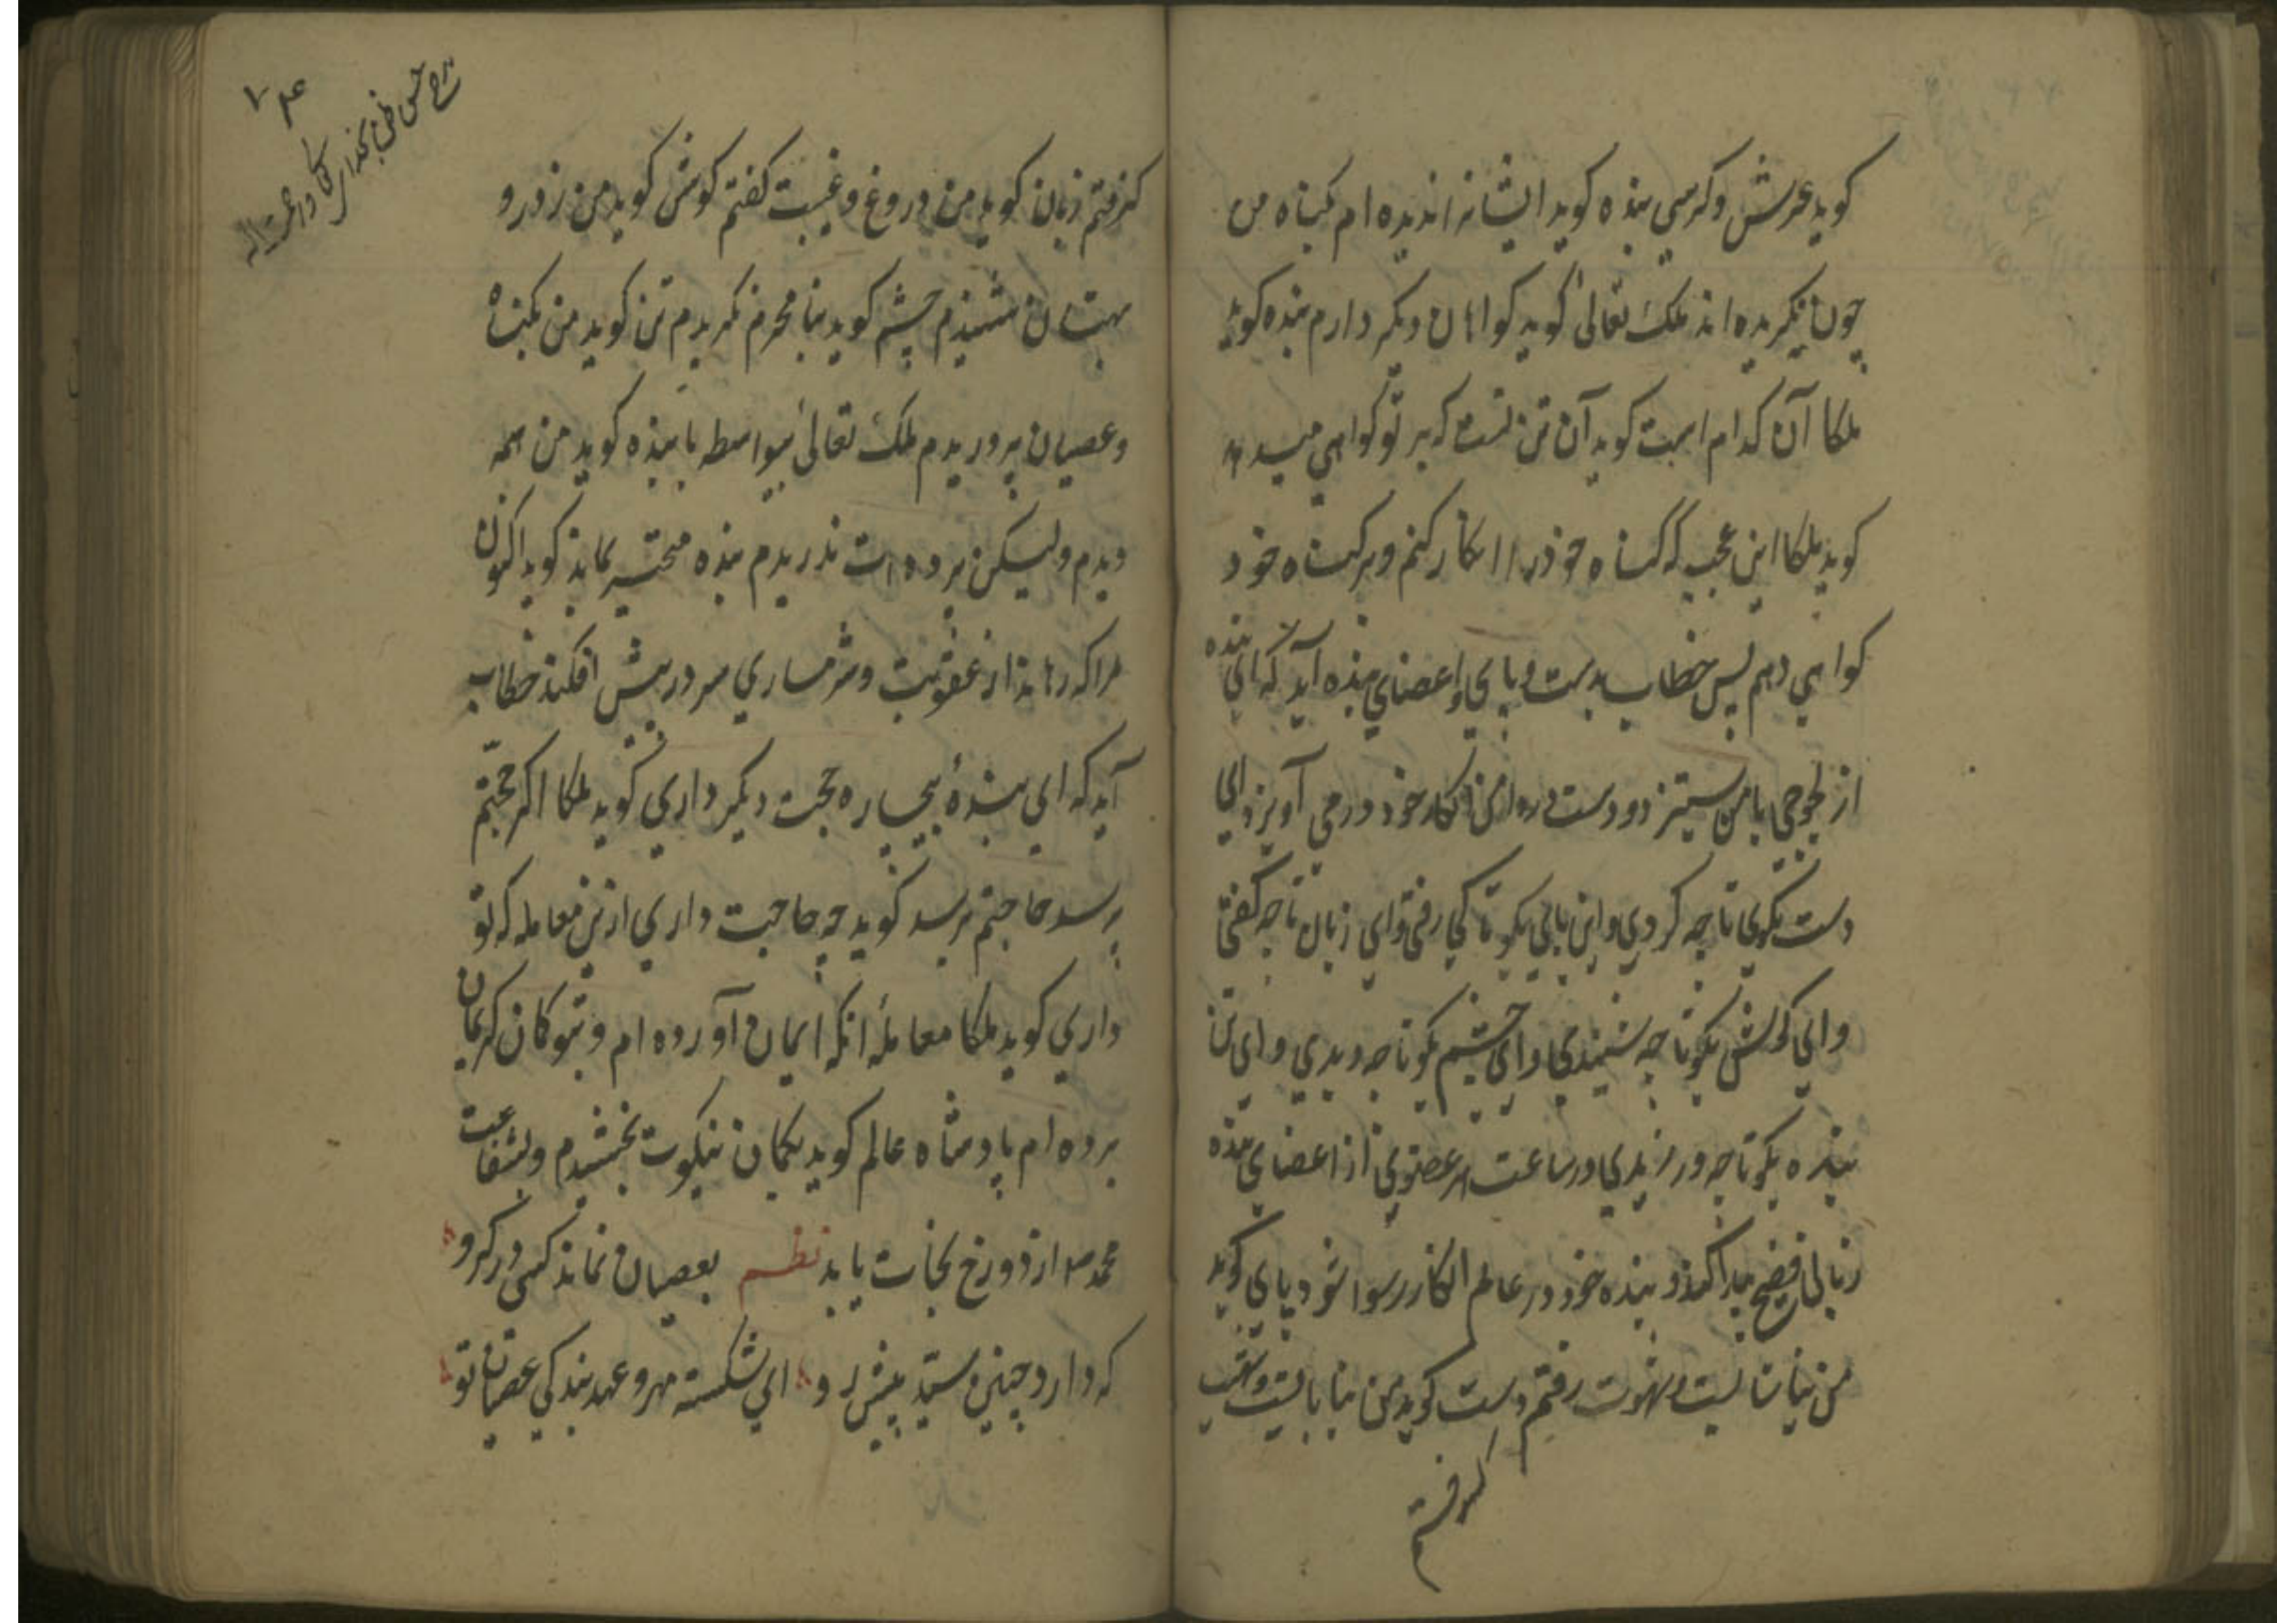 کوید عرش وکرسی بنده کوید ایشانرا ندیده ام کناه من
چون نکریده اند ملک تعالی کوید کواهان دیکر دارم بنده کوید
ملکا آن کدام است کوید آن تن تست که بر تو کواهی میدهد
کوید ملکا این عجب که کناه خود را انکار کنم وبر کناه خود
کواهی دهم پس خطاب بدست وپای واعضای بنده آید که ای بنده
از با من ستیزد ودست در انکار خود درمی آویزد ای
دست بکوی تا چه کردی وای پای بکو تا کجا رفتی وای زبان تا چه کفتی
وای کوش بکو تا چه شنیدی وای چشم بکو تا چه دیدی وای تن
بنده بکو تا چه ورزیدی در ساعت هر عضوی از اعضای بنده
زبانی فصیح پیدا کند و بنده خود در عالم انکار رسوا شود پای کوید
من بناشایست وشهوت رفتم دست کوید من بنابایست
کرفتم
کرفتم زبان کوید من دروغ وغیبت کفتم کوش کوید من زور و
بهتان شنیدم چشم کوید بنا محرم نکریدم تن کوید من بکناه
وعصیان پروریدم ملک تعالی بیواسطه با بنده کوید من همه
دیدم ولیکن پرده ات ندریدم بنده متحیر بماند کوید اکنون
مرا که رهاند از عقوبت وشرمساری سر در پیش افکند خطاب
آید که ای بندهٔ بیچاره حجت دیکر داری کوید ملکا اکر حجتم
پرسد حاجتم برسد کوید چه حاجت داری ازین معامله که تو
داری کوید ملکا معاملهٔ آنکه ایمان آورده ام وبتو کمان کریمان
برده ام پادشاه عالم کوید بکمان نیکوت بخشیدم وبشفاعت
محمد از دوزخ نجات یابد نظم بعصیان نماند کسی در کرو
که دارد چنین سید پیش رو ای شکسته مهر وعهد بندکی عصیان تو